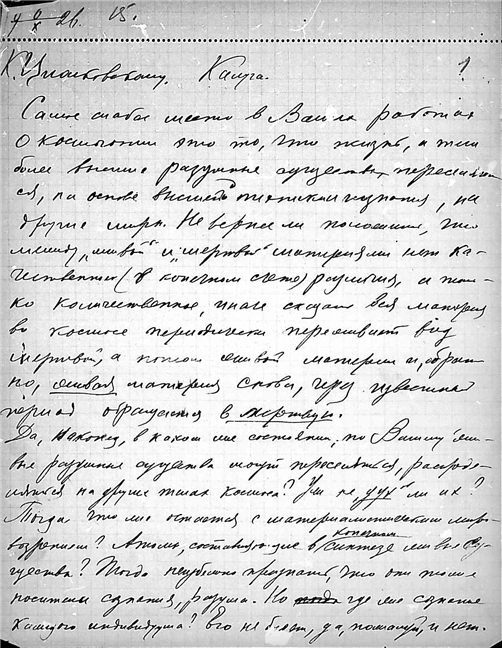 9/X 26. 15.
К. Циолковскому. Калуга. 1
Самое слабое место в Ваших работах
о космосе это то, что жизнь, а тем
более высшие разумные существа, переселяют
ся, на основе высшего техники и знания, на
другие миры. Не вернее ли положение, что
между „живой“ и „мертвой“ материями нет ка-
чественного (в конечном счете) различия, а толь-
ко количественное, иначе сказать вся материя
во космосе периодически переживает вид
мертвой, а потом живой материи и, обрат
но, живая материя снова, через известный
период обращается в мертвую.
Да, наконец, в каком же состоянии, по Вашему жи-
вые разумные существа могут переселяться, распреде-
ляться на другие тела космоса? Уж не „дух“ ли их?
Тогда что же остается с материалистическим миро-
воззрением? Атомы, составляющие в конечном синтезе живые су-
щества? Тогда неизбежно признать, что они тоже
носители сознания, разума. Но где же сознание
каждого индивидуума? Его не будет, да, пожалуй, и нет.